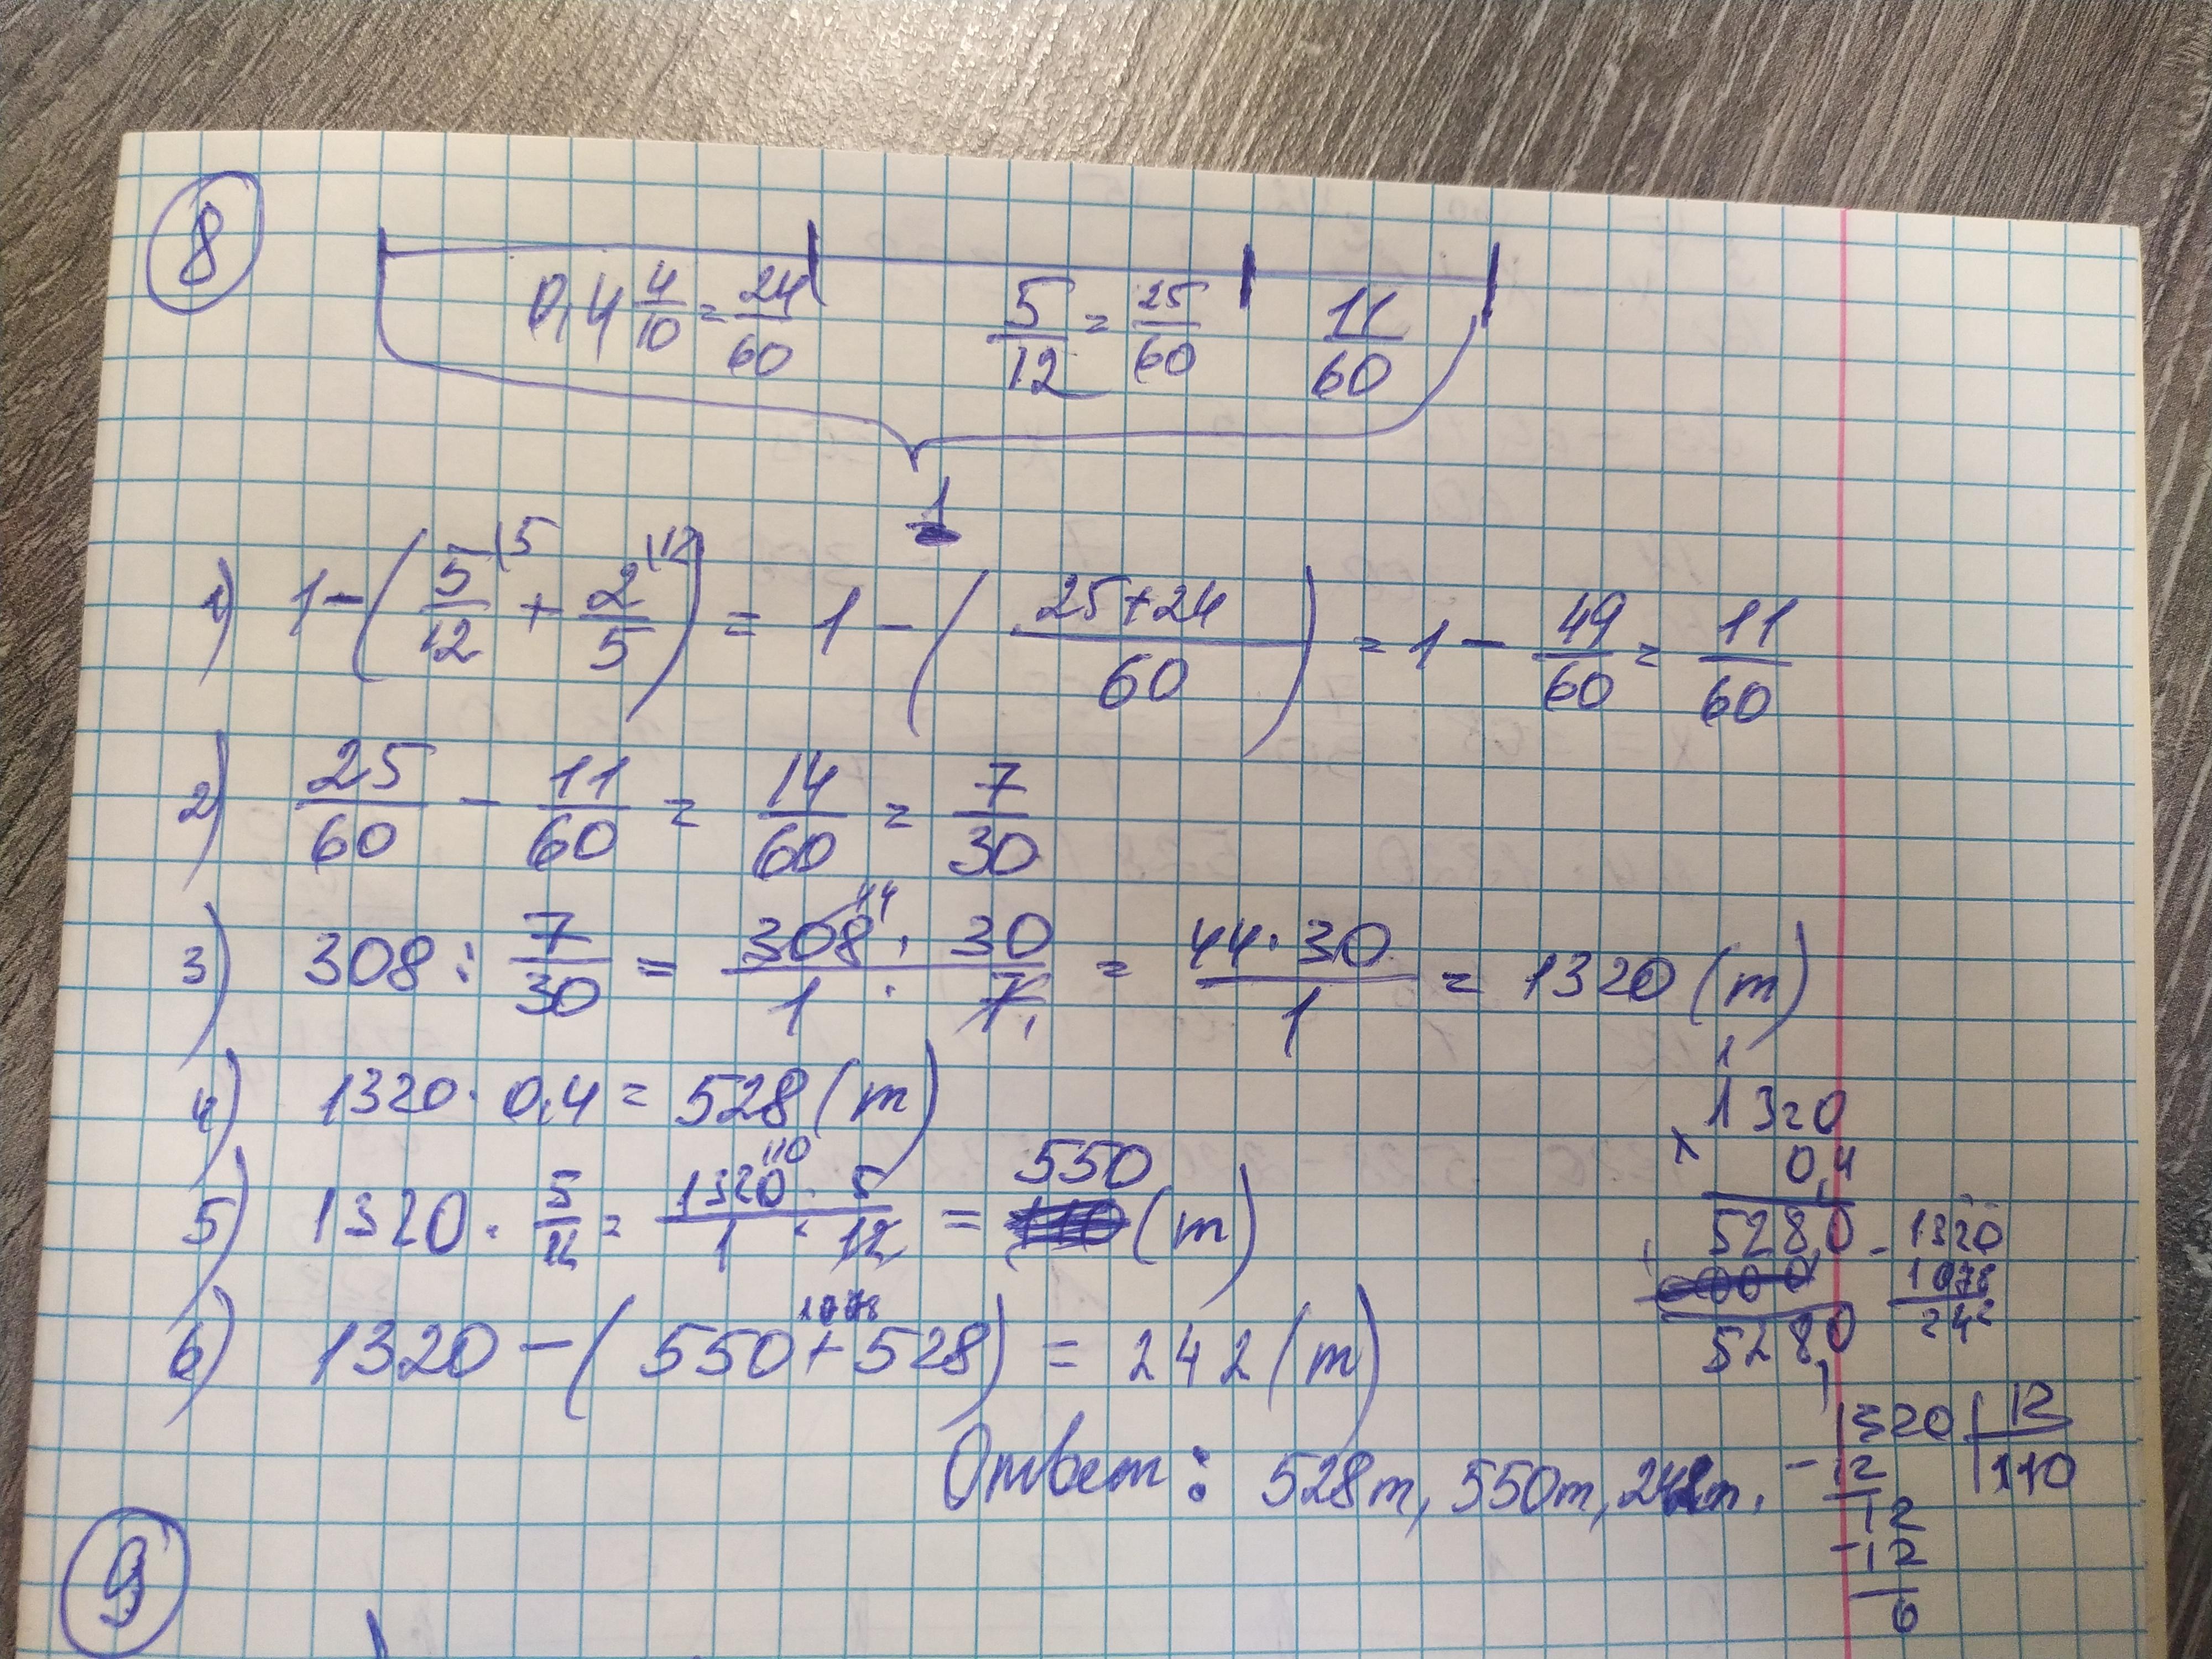 8
0,4 4/10 = 24/60 5/12 = 25/60 11/60
1
1) 1 - (5/12 |5 + 2/5 |12) = 1 - (25+24/60) = 1 - 49/60 = 11/60
2) 25/60 - 11/60 = 14/60 = 7/30
3) 308 : 7/30 = 308 44 · 30/1 · 7 1 = 44 · 30/1 = 1320 (т)
4) 1320 · 0,4 = 528 (т)
5) 1320 · 5/12 = 1320 110 · 5/1 · 12 = 550 (т)
6) 1320 - (550 + 528) 1078 = 242 (т)
Ответ: 528т, 550т, 242т.
1
1320
× 0,4
528,0
528,0
- 1320
1078
242
1320 | 12
- 12 | 110
12
- 12
0
9